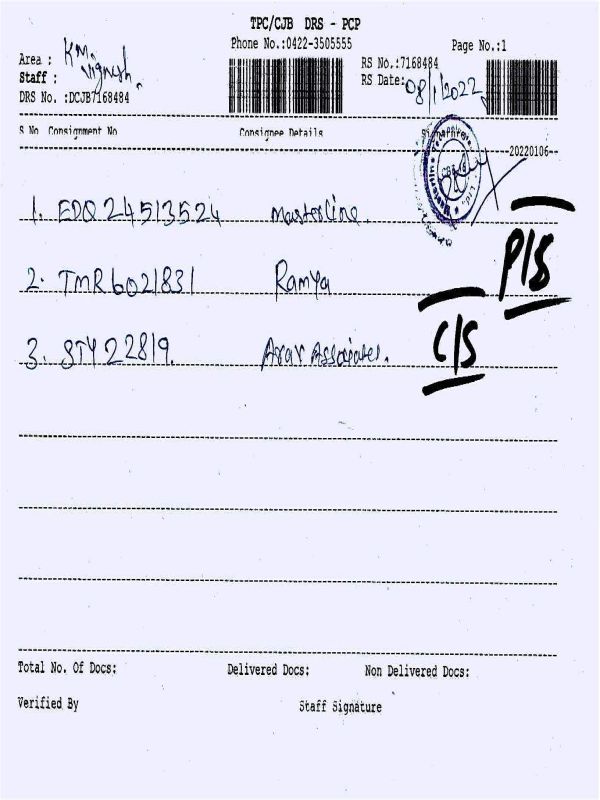 TPC/CJB DRS - PCP
Phone No.:0422-3505555 Page No.:1
Area : KM
Staff : Vignesh.
RS No.:7168484
RS Date: 08/1/2022
DRS No. :DCJB7168484
S No Consignment No Consignee Details Signature
20220106
1. EDQ24513524 Masterline.
P/S
2. TMR6021831 Ramya
3. STY22819. Arav Associates. C/S
Total No. Of Docs: Delivered Docs: Non Delivered Docs:
Verified By Staff Signature